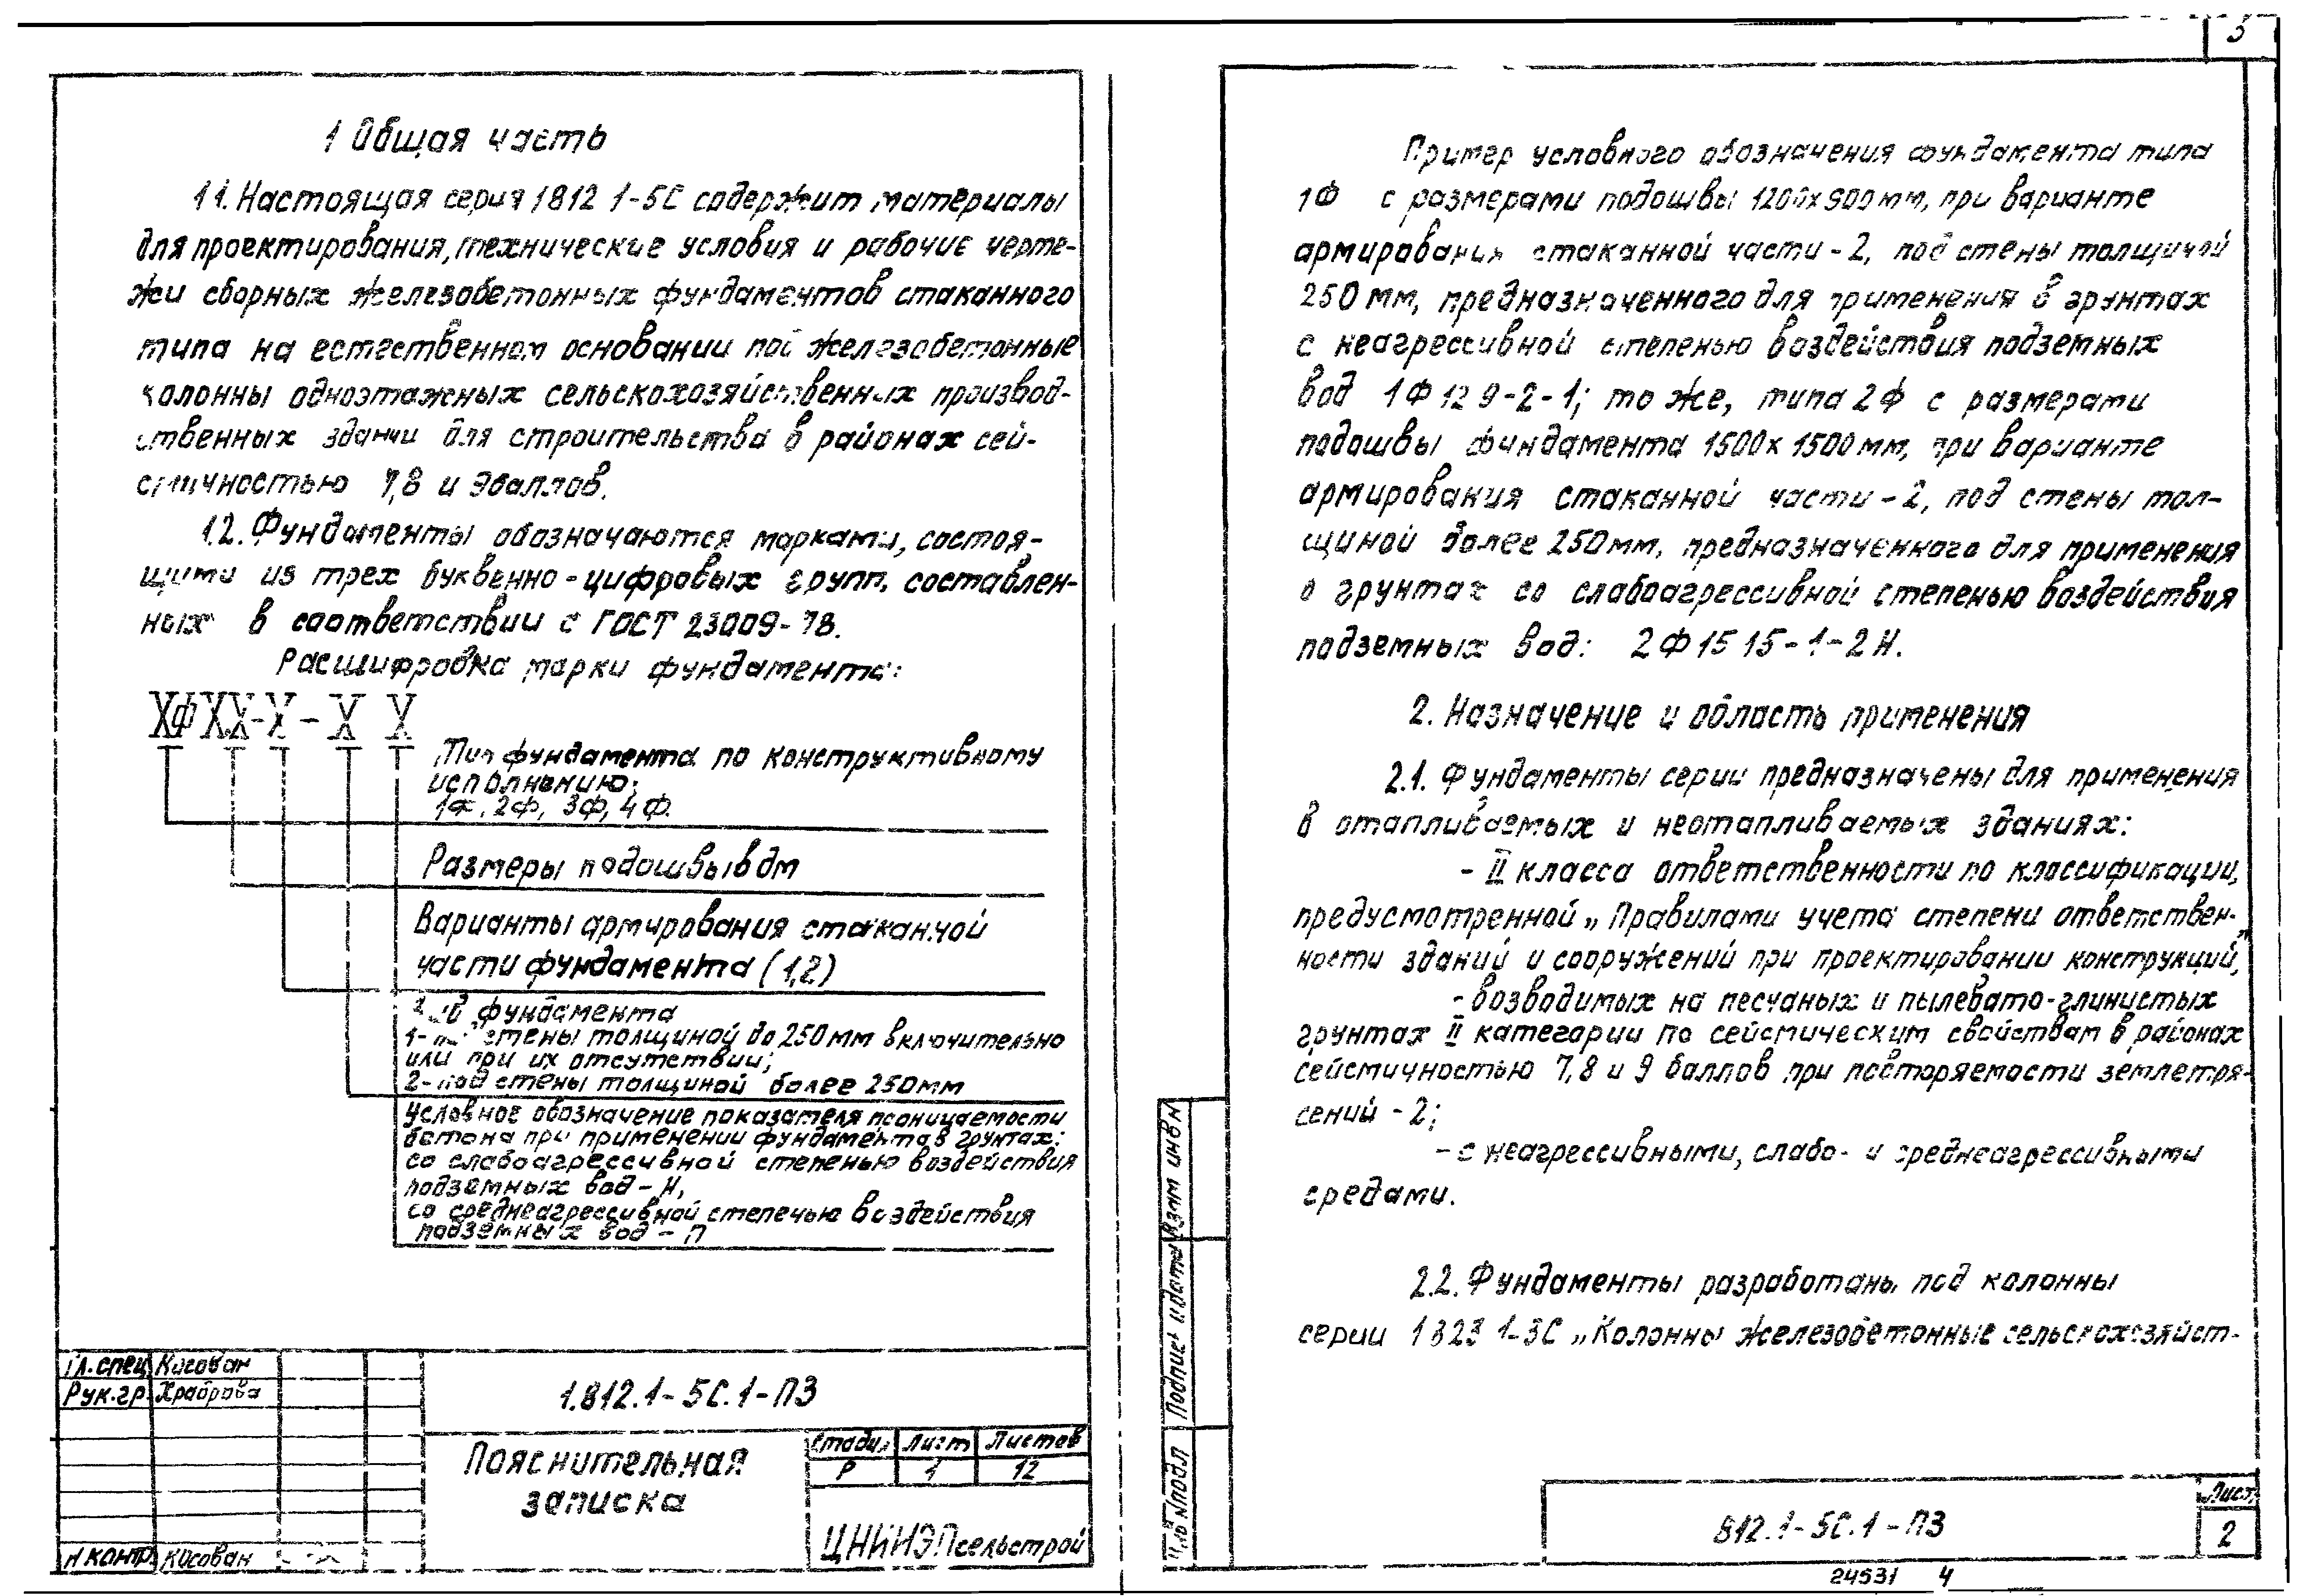 3
1 Общая часть
1.1. Настоящая серия 1812 1-5С содержит материалы
для проектирования, технические условия и рабочие черте-
жи сборных железобетонных фундаментов стаканного
типа на естественном основании под железобетонные
колонны одноэтажных сельскохозяйственных производ-
ственных зданий для строительства в районах сей-
смичностью 7,8 и 9 баллов.
1.2. Фундаменты обозначаются марками, состоя-
щими из трех буквенно-цифровых групп, составлен-
ных в соответствии с ГОСТ 23009-78.
Расшифровка марки фундамента:
ХФ ХХ-Х - Х Х
Тип фундамента по конструктивному
исполнению:
1Ф, 2Ф, 3Ф, 4Ф.
Размеры подошвы в дм
Варианты армирования стаканной
части фундамента (1,2)
Вид фундамента
1- под стены толщиной до 250мм включительно
или при их отсутствии;
2- под стены толщиной более 250мм
Условное обозначение показателя проницаемости
бетона при применении фундамента в грунтах:
со слабоагрессивной степенью воздействия
подземных вод - Н,
со среднеагрессивной степенью воздействия
подземных вод - П
Гл.спец Косован
Рук.гр. Храброва
Н контр. Косован
1.812.1-5С.1-ПЗ
Пояснительная
записка
Стадия Лист Листов
Р 1 12
ЦНИИЭПсельстрой
Пример условного обозначения фундамента типа
1Ф с размерами подошвы 1200х900мм, при варианте
армирования стаканной части - 2, под стены толщиной
250 мм, предназначенного для применения в грунтах
с неагрессивной степенью воздействия подземных
вод 1Ф 12 9-2-1; то же, типа 2Ф с размерами
подошвы фундамента 1500х1500мм, при варианте
армирования стаканной части - 2, под стены тол-
щиной более 250мм, предназначенного для применения
в грунтах со слабоагрессивной степенью воздействия
подземных вод: 2Ф 15 15-1-2Н.
2. Назначение и область применения
2.1. Фундаменты серии предназначены для применения
в отапливаемых и неотапливаемых зданиях:
- II класса ответственности по классификации,
предусмотренной „Правилами учета степени ответствен-
ности зданий и сооружений при проектировании конструкций",
- возводимых на песчаных и пылевато-глинистых
грунтах II категории по сейсмическим свойствам в районах
сейсмичностью 7,8 и 9 баллов при повторяемости землетря-
сений - 2;
- с неагрессивными, слабо- и среднеагрессивными
средами.
2.2. Фундаменты разработаны под колонны
серии 1823 1-3С „Колонны железобетонные сельскохозяйст-
Взам инв N
Подпись и дата
Инв N подл
812.1-5С.1-ПЗ
Лист
2
24531 4